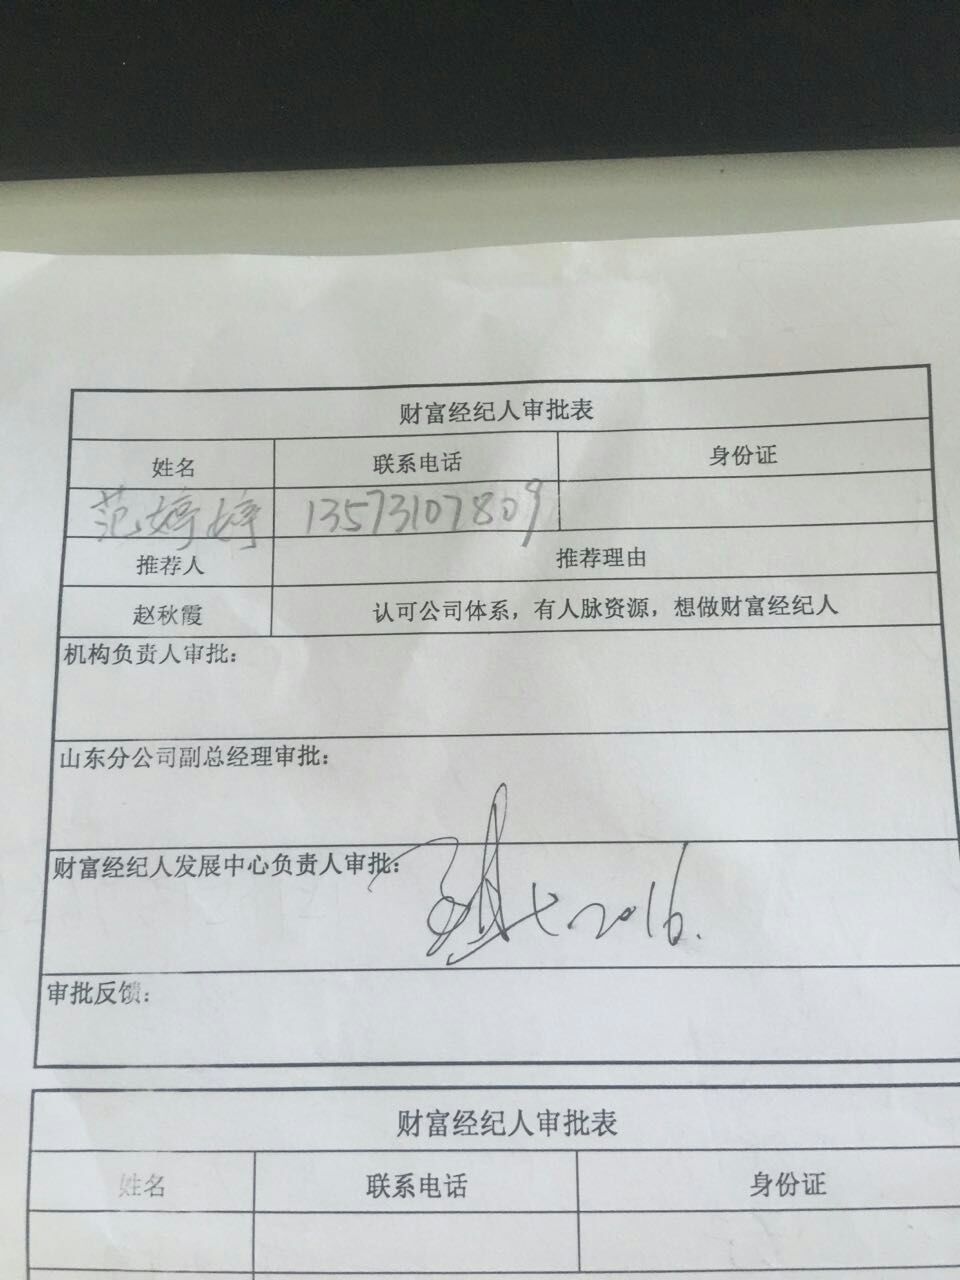 财富经纪人审批表
姓名 联系电话 身份证
范婷婷 13573107809
推荐人 推荐理由
赵秋霞 认可公司体系，有人脉资源，想做财富经纪人
机构负责人审批：
山东分公司副总经理审批：
财富经纪人发展中心负责人审批：
2016.
审批反馈：
财富经纪人审批表
姓名 联系电话 身份证